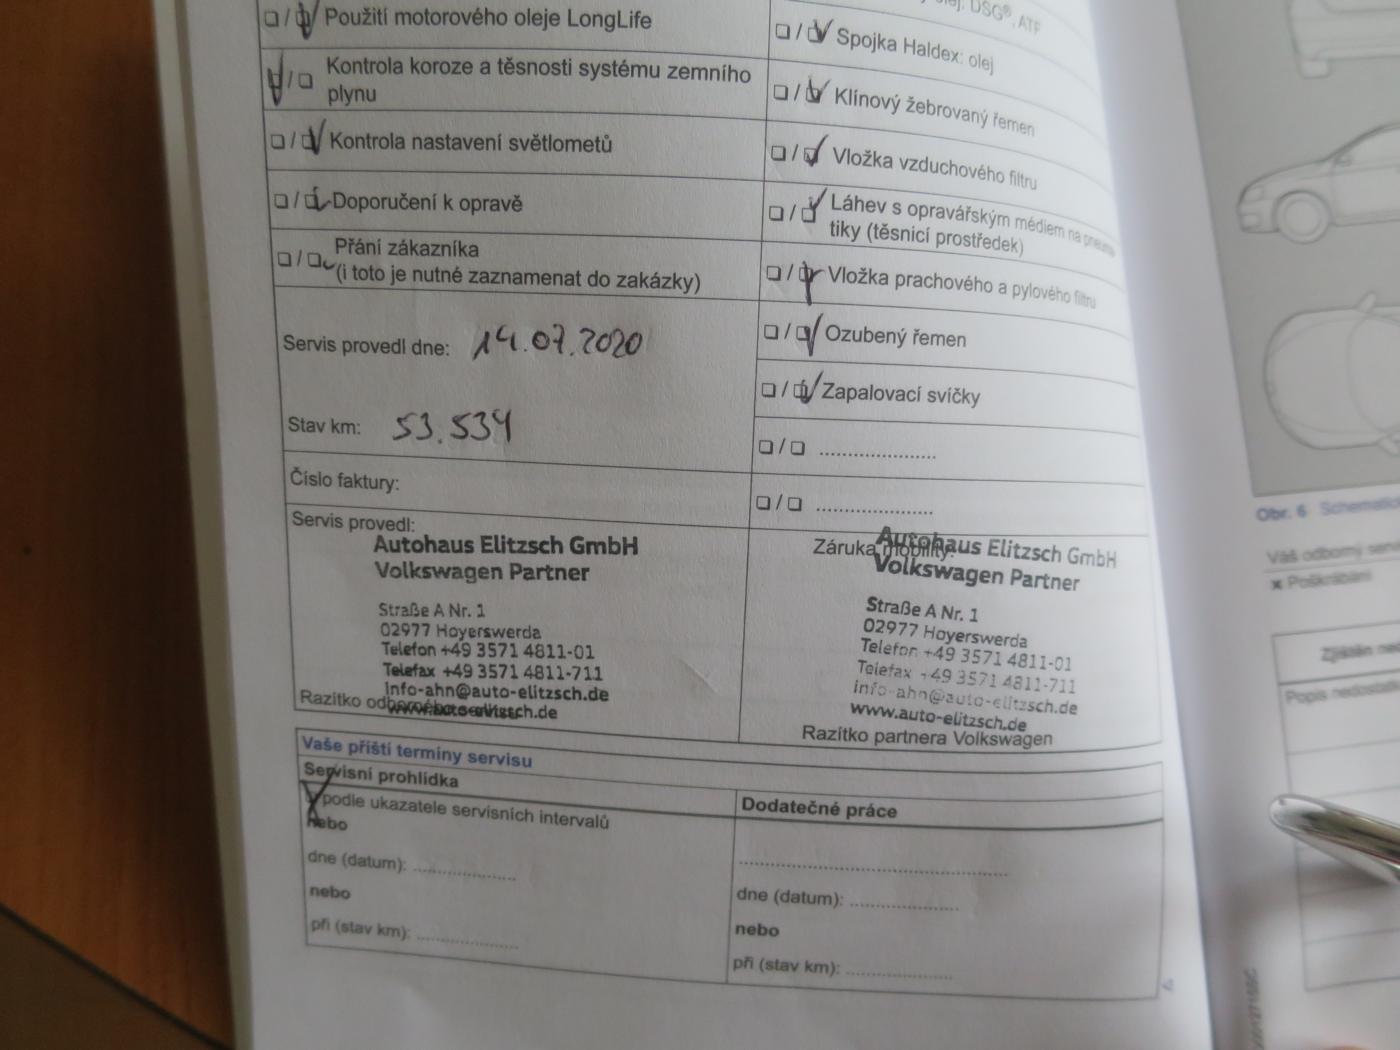 Použití motorového oleje LongLife
Kontrola koroze a těsnosti systému zemního
plynu
Kontrola nastavení světlometů
Doporučení k opravě
Přání zákazníka
(i toto je nutné zaznamenat do zakázky)
Servis provedl dne: 14.07.2020
Stav km: 53.534
Číslo faktury:
Servis provedl:
Autohaus Elitzsch GmbH
Volkswagen Partner
Straße A Nr. 1
02977 Hoyerswerda
Telefon +49 3571 4811-01
Telefax +49 3571 4811-711
info-ahn@auto-elitzsch.de
www.auto-elitzsch.de
Razítko odborného servisu
olej: DSG®, ATF
Spojka Haldex: olej
Klínový žebrovaný řemen
Vložka vzduchového filtru
Láhev s opravářským médiem na pneuma-
tiky (těsnicí prostředek)
Vložka prachového a pylového filtru
Ozubený řemen
Zapalovací svíčky
Záruka mobility:
Autohaus Elitzsch GmbH
Volkswagen Partner
Straße A Nr. 1
02977 Hoyerswerda
Telefon +49 3571 4811-01
Telefax +49 3571 4811-711
info-ahn@auto-elitzsch.de
www.auto-elitzsch.de
Razítko partnera Volkswagen
Vaše příští termíny servisu
Servisní prohlídka
podle ukazatele servisních intervalů
nebo
dne (datum): ....................
nebo
při (stav km): ....................
Dodatečné práce
dne (datum): ....................
nebo
při (stav km): ....................
Obr. 6 Schemati
Váš odborný serv
Poškrábání
Zjištěn ned
Popis nedostat